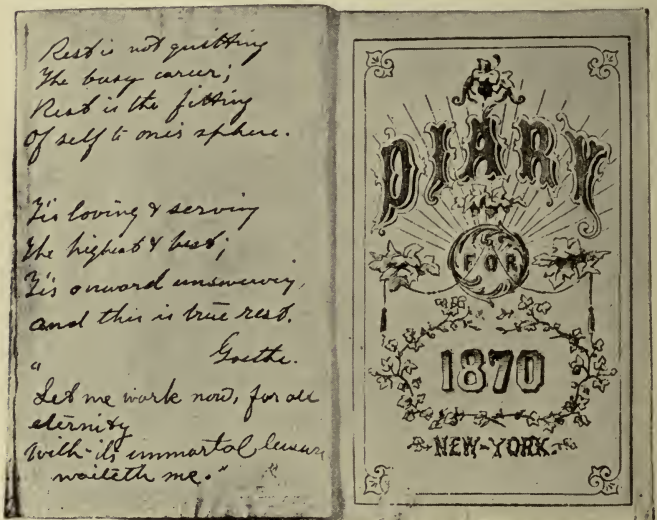 Rest is not quitting
The busy career;
Rest is the fitting
Of self to one's sphere.
'Tis loving & serving
The highest & best;
'Tis onward unswerving,
and this is true rest.
Goethe.
"
Let me work now, for all
eternity
With its immortal leisure
waiteth me."
DIARY
FOR
1870
NEW-YORK.